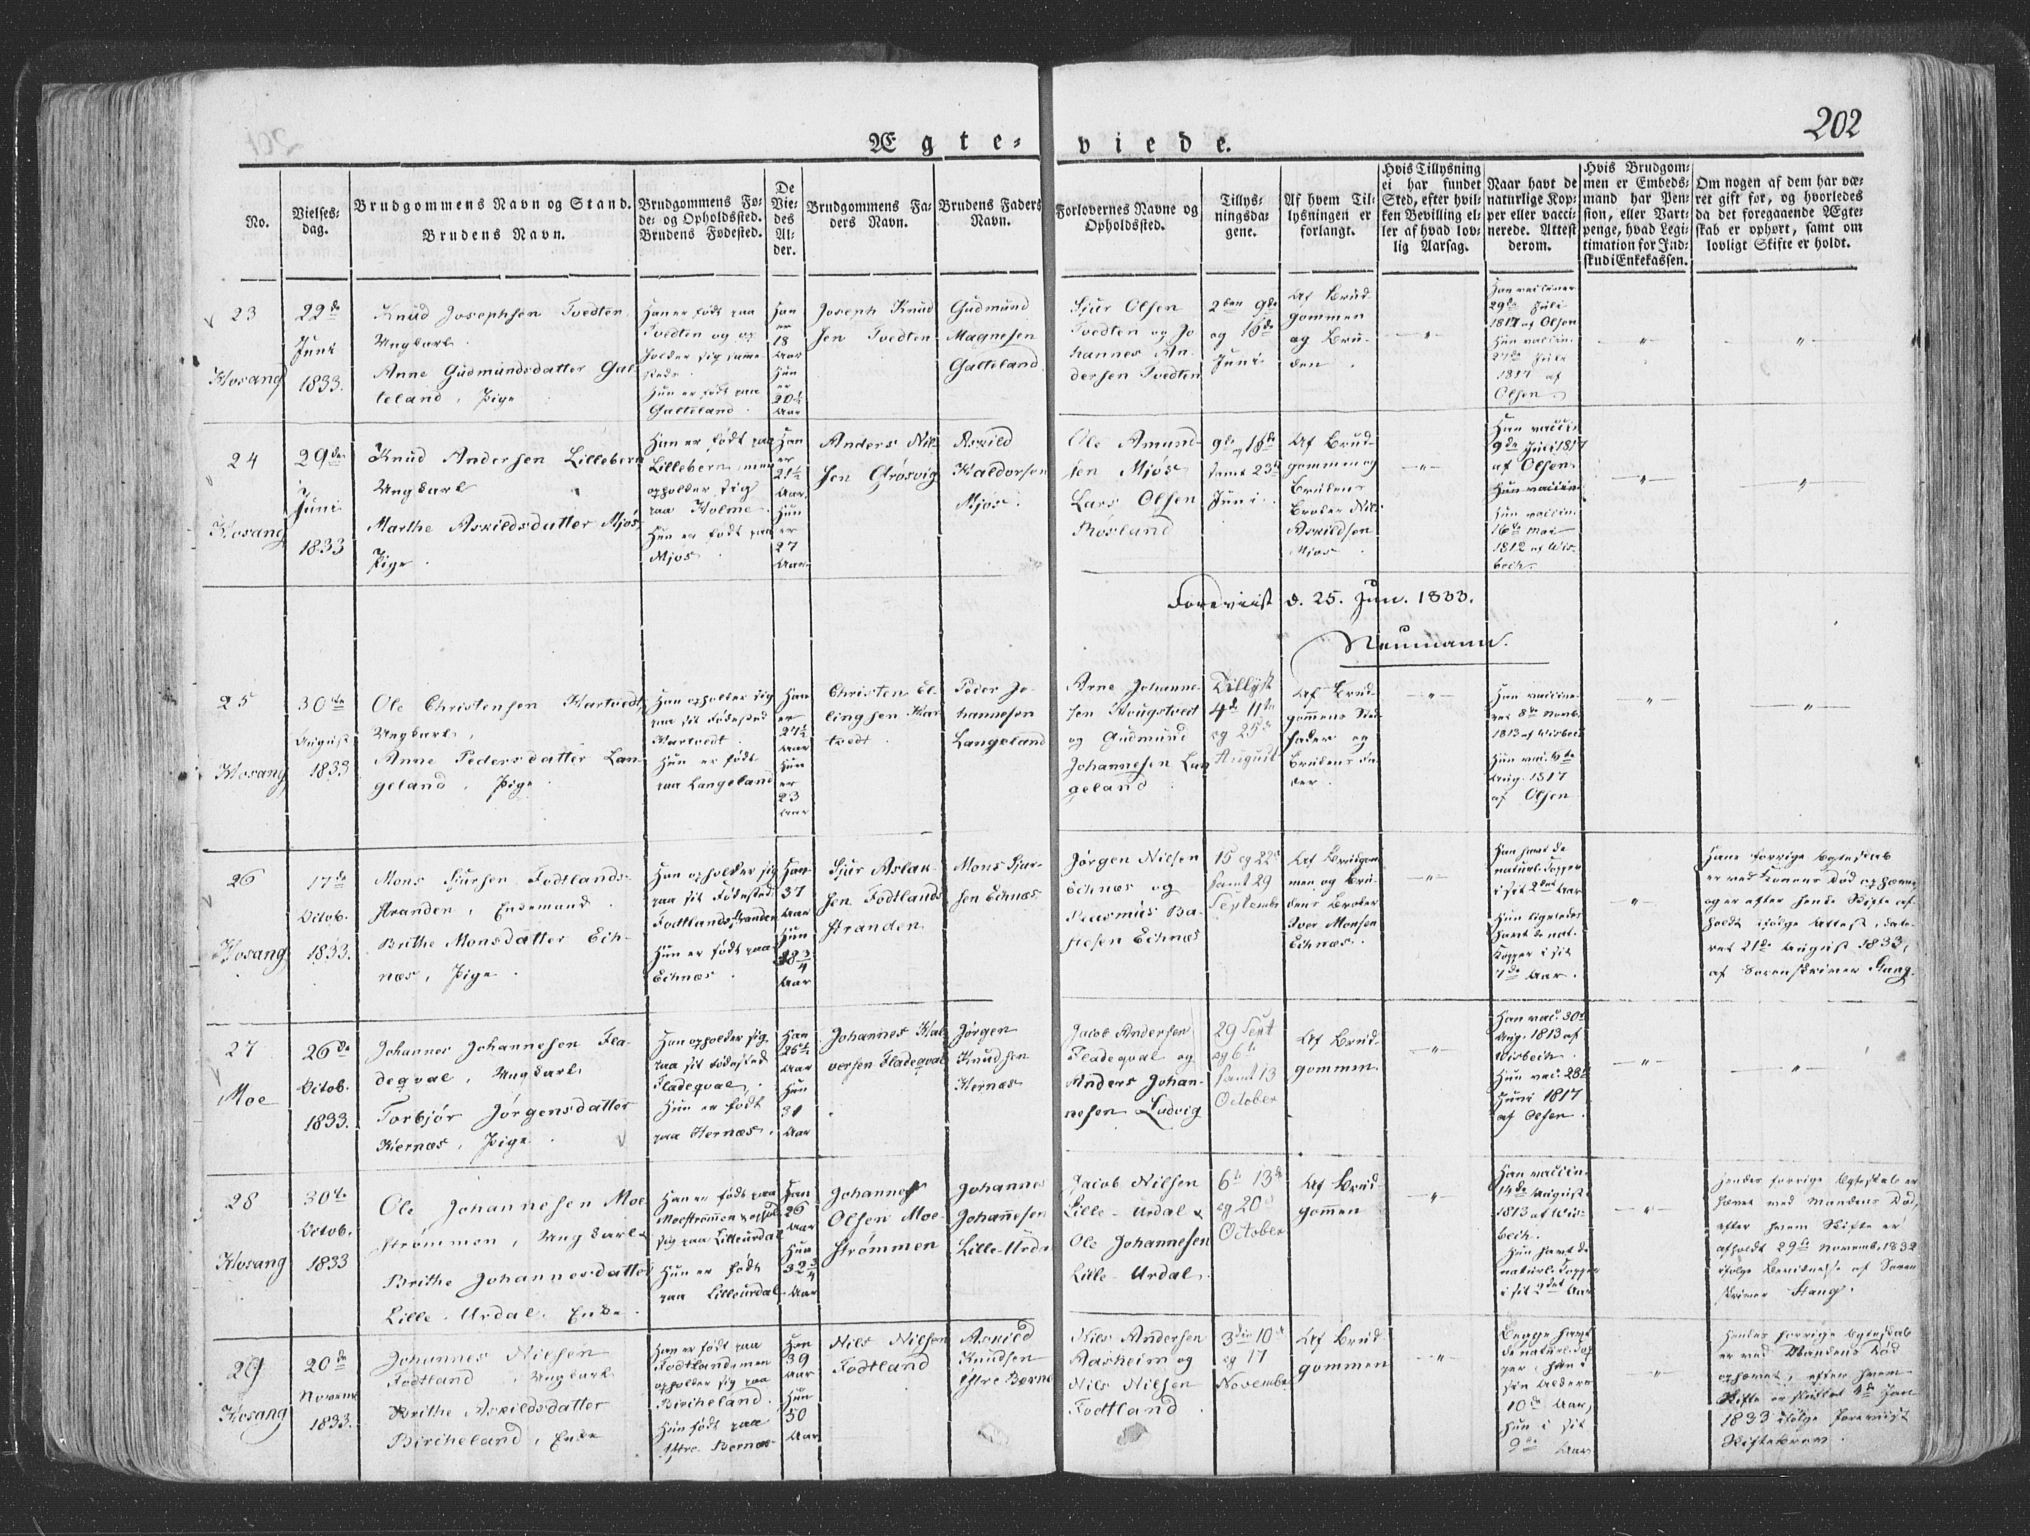 202
Ægte-viede.
No.
Vielses-
dag.
Brudgommens Navn og Stand.
Brudens Navn.
Brudgommens Fø-
de- og Opholdssted.
Brudens Fødested.
De
Vie-
des
Al-
der.
Brudgommens Fa-
ders Navn.
Brudens Faders
Navn.
Forlovernes Navne og
Opholdssted.
Tillys-
ningsda-
gene.
Af hvem Til-
lysningen er
forlangt.
Hvis Tillysning
ei har fundet
Sted, efter hvil-
ken Bevilling el-
ler af hvad lov-
lig Aarsag.
Naar havt de
naturlige Kop-
per eller vacci-
nerede. Attest
derom.
Hvis Brudgom-
men er Embeds-
mand har Pen-
sion, eller Vart-
penge, hvad Legi-
timation for Ind-
skud i Enkekassen.
Om nogen af dem har væ-
ret gift før, og hvorledes
da det foregaaende Ægte-
skab er ophørt, samt om
lovligt Skifte er holdt.
23
Hosang
22de
Juni
1833.
Knud Josephsen Tvedten
Ungkarl.
Anne Gudmundsdatter Gal-
teland, Pige
Han er født paa
Tvedten og op
holder sig samme
steds.
Hun er født paa
Galteland.
Han
er
18
Aar
Hun
er
20½
Aar
Joseph Knud
sen Tvedten
Gudmund
Magnesen
Galteland.
Sjur Olsen
Tvedten og Jo
hannes An
dersen Tvedten
2den 9de
og 16de
Juni
Af Brud-
gommen
og Bru-
den.
Han vacciner
29de Juli
1817 af Olsen
Hun vaccin.
27de Juli
1817 af
Olsen.
24
Hosang
29de
Juni
1833
Knud Andersen Lillebern
Ungkarl
Marthe Askildsdatter Mjøs
Pige.
Han er født paa
Lillebern, men
opholder sig
paa Holme.
Hun er født paa
Mjøs.
Han
er
21½
Aar.
Hun
er
27
Aar.
Anders Nil
sen Grøsvig
Askild
Haldorsen
Mjøs.
Ole Amund-
sen Mjøs
Lars Olsen
Rosland
9de og 16de
samt 23de
Juni.
Af Brud-
gommen og
Brudens
Broder Nils
Askildsen
Mjøs.
Han vacci.
9de Juni 1817
af Olsen.
Hun vaccine
Hun vaccin.
16de Mai
1812 af Wis-
bech.
Foreviist d. 25. Jun. 1833.
Neumann.
25
Hosang
30te
August
1833
Ole Christensen Hartvedt
Ungkarl,
Anne Pedersdatter Lan-
geland, Pige
Han opholder sig
paa sit Fødested
Hartvedt.
Hun er født
paa Langeland
Han
er
27½
Aar
Hun
er
23
Aar
Christen El-
lingsen Har
tvedt.
Peder Jo-
hannesen
Langeland
Arne Johanne-
sen Hougstvedt
og Gudmund
Johannesen Lan
geland
Tillyst
4de 11te
og 25de
August
Af Brud-
gommens Sted
fader og
Brudens Fa-
der.
Han vaccine-
ret 8de Novb.
1813 af Wisbech
Hun vac. 4de
Aug. 1817
af Olsen
26
Hosang
17de
Octob.
1833.
Mons Sjursen Fodtlands-
stranden, Enkemand.
Brithe Monsdatter Eik-
næs, Pige.
Han opholder sig
paa sit Fødested
Fodtlandsstranden
Hun er født paa
Eiknæs.
Han
37
Aar
Hun
38¾
Aar
Sjur Aslak-
sen Fodtlands
stranden.
Mons Sjur-
sen Eiknæs
Jørgen Nilsen
Eiknæs og
Rasmus Ba-
stesen Eiknæs
15 og 22de
samt 29
September
Af Brudgom-
men og Bru-
dens Broder
Iver Monsen
Eiknæs.
Han havt de
naturl. Kopper
i sit 2det Aar
Hun ligeledes
havt de nat.
Kopper i sit
7de Aar.
Hans forrige Egteskab
er ved Konens Død ophævet
og er efter hende Skifte af-
holdt ifølge Attest, date-
ret 21de August 1833,
af Sorenskriver Stang.
27
Moe
26de
Octob.
1833.
Johannes Johannesen Fla-
deqval, Ungkarl
Torbjør Jørgensdatter
Hernæs, Pige.
Han opholder sig
paa sit Fødested
Fladeqval.
Hun er født
paa Hernæs.
Han
25½
Aar
Hun
31
Aar
Johannes Hal
versen Fladeqval
Jørgen
Knudsen
Hernæs
Jacob Andersen
Fladeqval og
Anders Johan-
nesen Ludvig
29 Sept
og 6te
samt 13
October
Af Brud-
gommen.
Han vac. 30te
Aug. 1813 af
Wisbech.
Hun vac. 28de
Juni 1817
af Olsen.
28
Hosang
30te
Octob.
1833
Ole Johannesen Moe
strømmen, Ungkarl
Brithe Johannesdatter
Lille-Urdal. Enke.
Han er født paa
Moestrømmen & ophol
sig paa Lilleurdal
Hun er født
paa Lilleurdal
Han
26
Aar
Hun
32¾
Aar
Johannes
Olsen Moe-
strømmen
Johannes
Johanesen
Lille-Urda
Jacob Nilsen
Lille-Urdal &
Ole Johannesen
Lille-Urdal.
6te 13de
og 20de
October
Af Brud-
gommen
Han vaccin.
14de August
1813 af Wis-
bech.
Hun havt de
naturl. Kopper
i sit 2det Aar
Hendes forrige Egteskab er
hævet ved Mandens Død,
efter hvem Skifte er
afholdt 29de Novemb. 1832
ifølge Beviisnelse af Soren
skriver Stang.
29
Hosang
20de
Novemb.
1833.
Johannes Nilsen
Fodtland, Ungkarl
Brithe Askildsdatter
Bircheland, Enke
Han er født paa
Fodtland men
opholder sig paa
Bircheland.
Hun født paa
Ytre Bernæs
Han
39
Aar
Hun
50
Aar
Nils Nilsen
Fodtland
Askild
Knudsen
Ytre Berne
Nils Andersen
Aasheim og
Nils Nilsen
Fodtland.
3die 10de
og 17
November
Af Brud
gommen
Begge havt
de naturl. Kop
per, han i
sin Alders
10de Aar,
hun i sit
9de Aar
Hendes forrige Egteskab
er ved Mandens Død
ophævet, efter hvem
Skifte er sluttet 4de Jan
1833 ifølge foreviist
Skiftebrev.